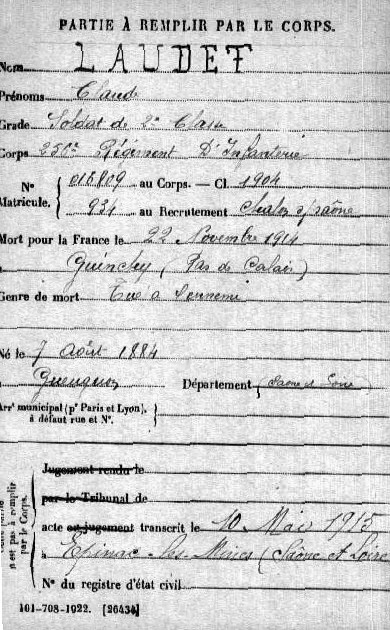 PARTIE À REMPLIR PAR LE CORPS.
Nom LAUDET
Prénoms Claude
Grade Soldat de 2e Classe
Corps 256e Régiment D'Infanterie
N° Matricule. { 016809 au Corps. — Cl. 1904
934 au Recrutement Chalon s/Saône
Mort pour la France le 22 Novembre 1914
à Guinchy (Pas de Calais)
Genre de mort Tué à l'ennemi
Né le 7 Août 1884
à Gueugnon Département Saone et Loire
Arr' municipal (p' Paris et Lyon), à défaut rue et N°.
n'est pas à remplir par le Corps.
Jugement rendu le
par le Tribunal de
acte ou jugement transcrit le 10 Mai 1915
à Epinac-les-Mines (Saône et Loire
N° du registre d'état civil
101-708-1922. [26434]